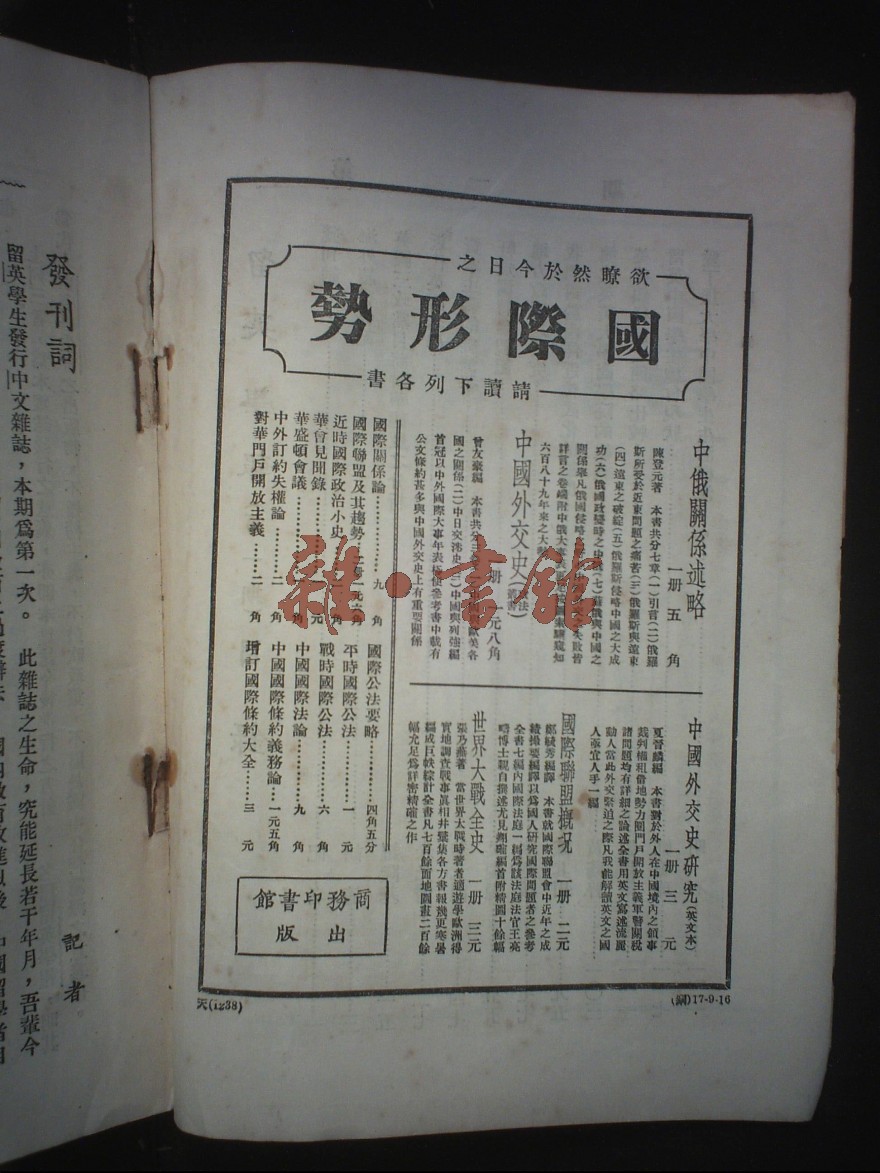 欲瞭然於今日之
國際形勢
請讀下列各書
中俄關係述略
一册 五角
陳登元著 本書共分七章(一)引言(二)俄羅
斯所受於近東問題之痛苦(三)俄羅斯與遠東
(四)遠東之破綻(五)俄羅斯侵略中國之大成
功(六)俄國政變時之中
(七)蘇俄與中國之
關係舉凡俄國侵略
失敗皆
詳言之卷端附中俄大事表
知
六百八十九年來之大勢
中國外交史
一册 一元八角
曾友豪編 本書共分三
歐美各
國之關係(二)中日交涉史(三)中國與列強編
首冠以中外國際大事年表極便參考書中載有
公文條約甚多與中國外交史上有重要關係
中國外交史研究(英文本)
一册 三元
夏晉麟編 本書對於外人在中國境內之領事
裁判權租借地勢力圈門戶開放主義軍警關稅
諸問題均有詳細之論述全書用英文寫述流麗
動人當此外交緊迫之際凡我能解讀英文之國
人亟宜人手一編
國際聯盟概況 一册 二元
鄭毓秀編譯 本書就國際聯盟會中近年之成
績撮要編譯以爲國人研究國際問題者之參考
全書七編內國際法庭一編爲該法庭法官王亮
疇博士親自撰述尤見精確編首附精圖十餘幅
世界大戰全史 一册 三元
張乃燕著 當世界大戰時著者適遊學歐洲得
實地調查戰事眞相并蒐集各方書報幾更寒暑
編成巨帙綜計全書凡七百餘面地圖亦二百餘
幅允足爲詳密精確之作
國際關係論……九角
國際聯盟及其趨勢…二册一元六角
近時國際政治小史
華會見聞錄……一元
華盛頓會議……二角
中外訂約失權論……二角
對華門戶開放主義……二角
國際公法要略……四角五分
平時國際公法……一元
戰時國際公法……六角
中國國際法論……九角
中國國際條約義務論…一元五角
增訂國際條約大全……三元
商務印書館
出版
天(1238)
17-9-16
雜·書館
發刊詞
記者
留英學生發行中文雜誌，本期爲第一次。 此雜誌之生命，究能延長若干年月，吾輩今